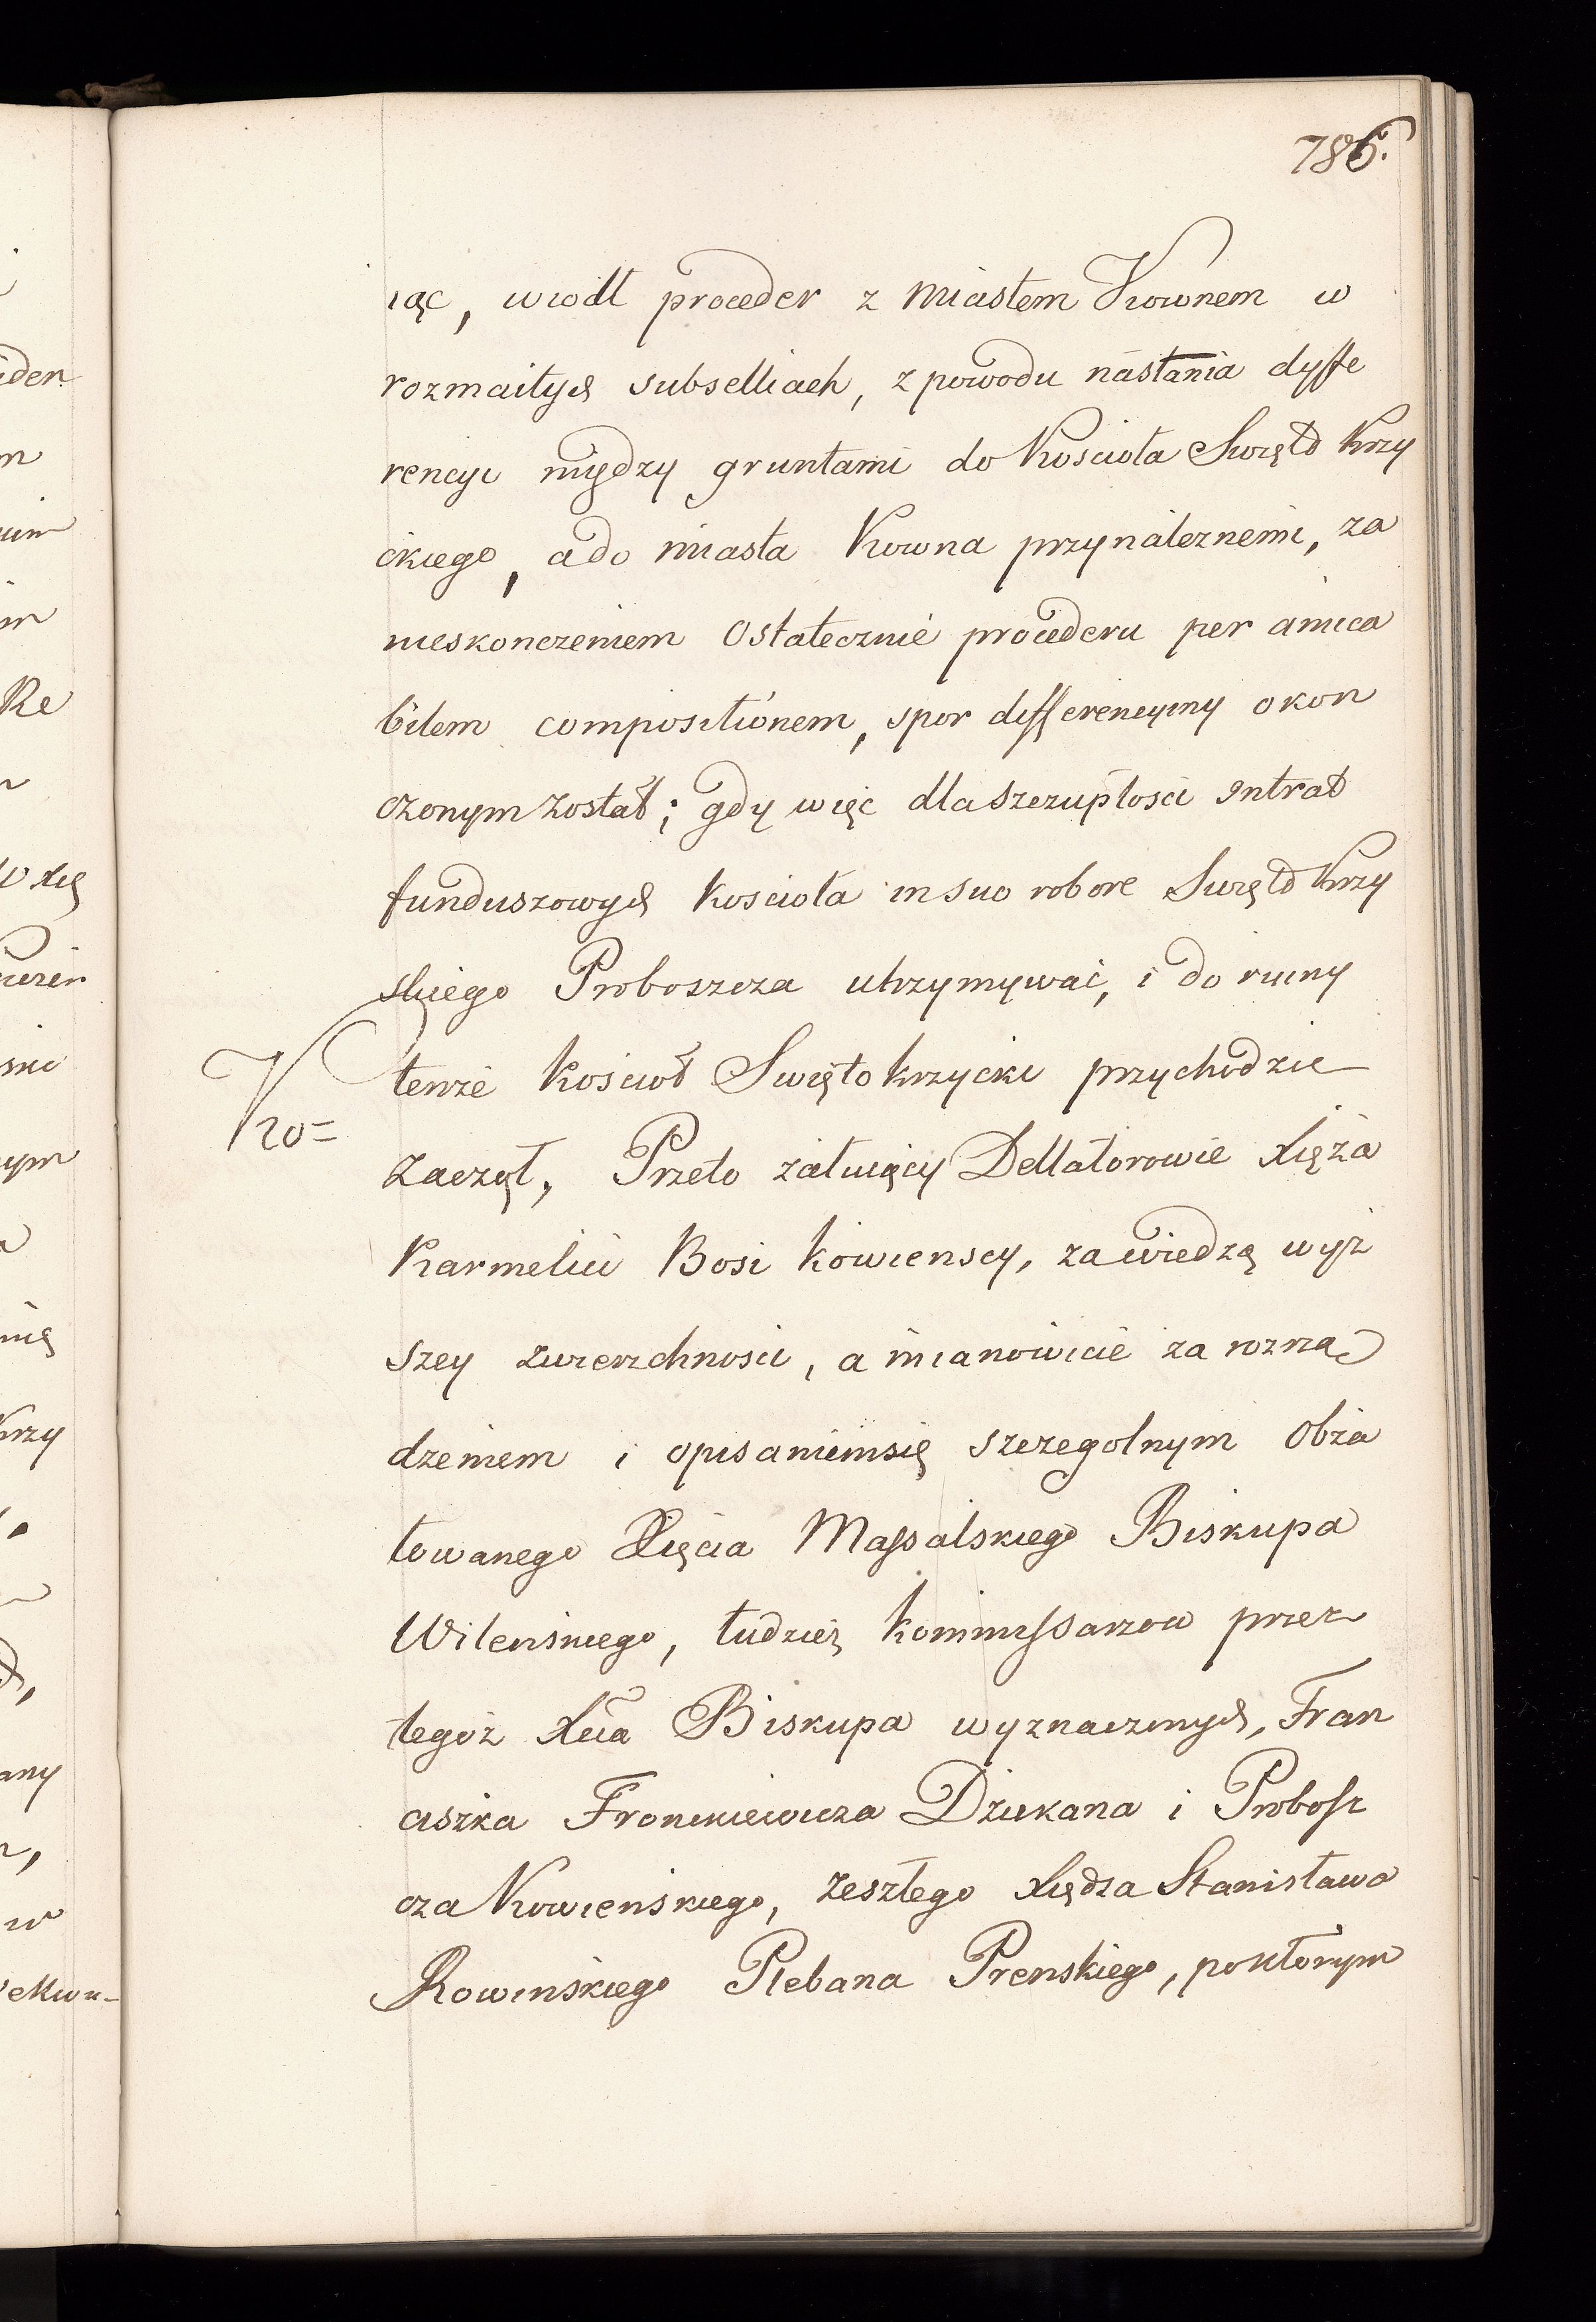 786.
iąc, wiodł proceder z miastem Kownem w
rozmaitych subselliach, z powodu nastania dyffe
rencyi między gruntami do Kościoła Swięto Krzy
ckiego, a do miasta Kowna przynależnemi, za
nieskonczeniem ostatecznie procederu per amica
bilem compositionem, spor differencyiny okon
czonym został; gdy więc dla szczupłości intrat
funduszowych Kościoła in suo robore Swięto Krzy
skiego Proboszcza utrzymywać, i do ruiny
tenże Kościoł Swięto krzycki przychodzić
zaczął, Przeto żałuiący Dellatorowie Xięża
Karmelici Bosi kowienscy, za wiedzą wyż
szey zwierzchności, a mianowicie za rozrzą
dzeniem i opisaniem się szczegolnym Obża
towanego Xięcia Massalskiego Biskupa
Wileńskiego, tudzież kommissarzow przez
tegoż Xcia Biskupa wyznaczonych, Fran
ciszka Fronckiewicza Dziekana i Probosz
cza Kowieńskiego, zeszłego Xiędza Stanisława
Rowińskiego Plebana Prenskiego, po którym
ro=
iden
m
Re
krzy
any
w